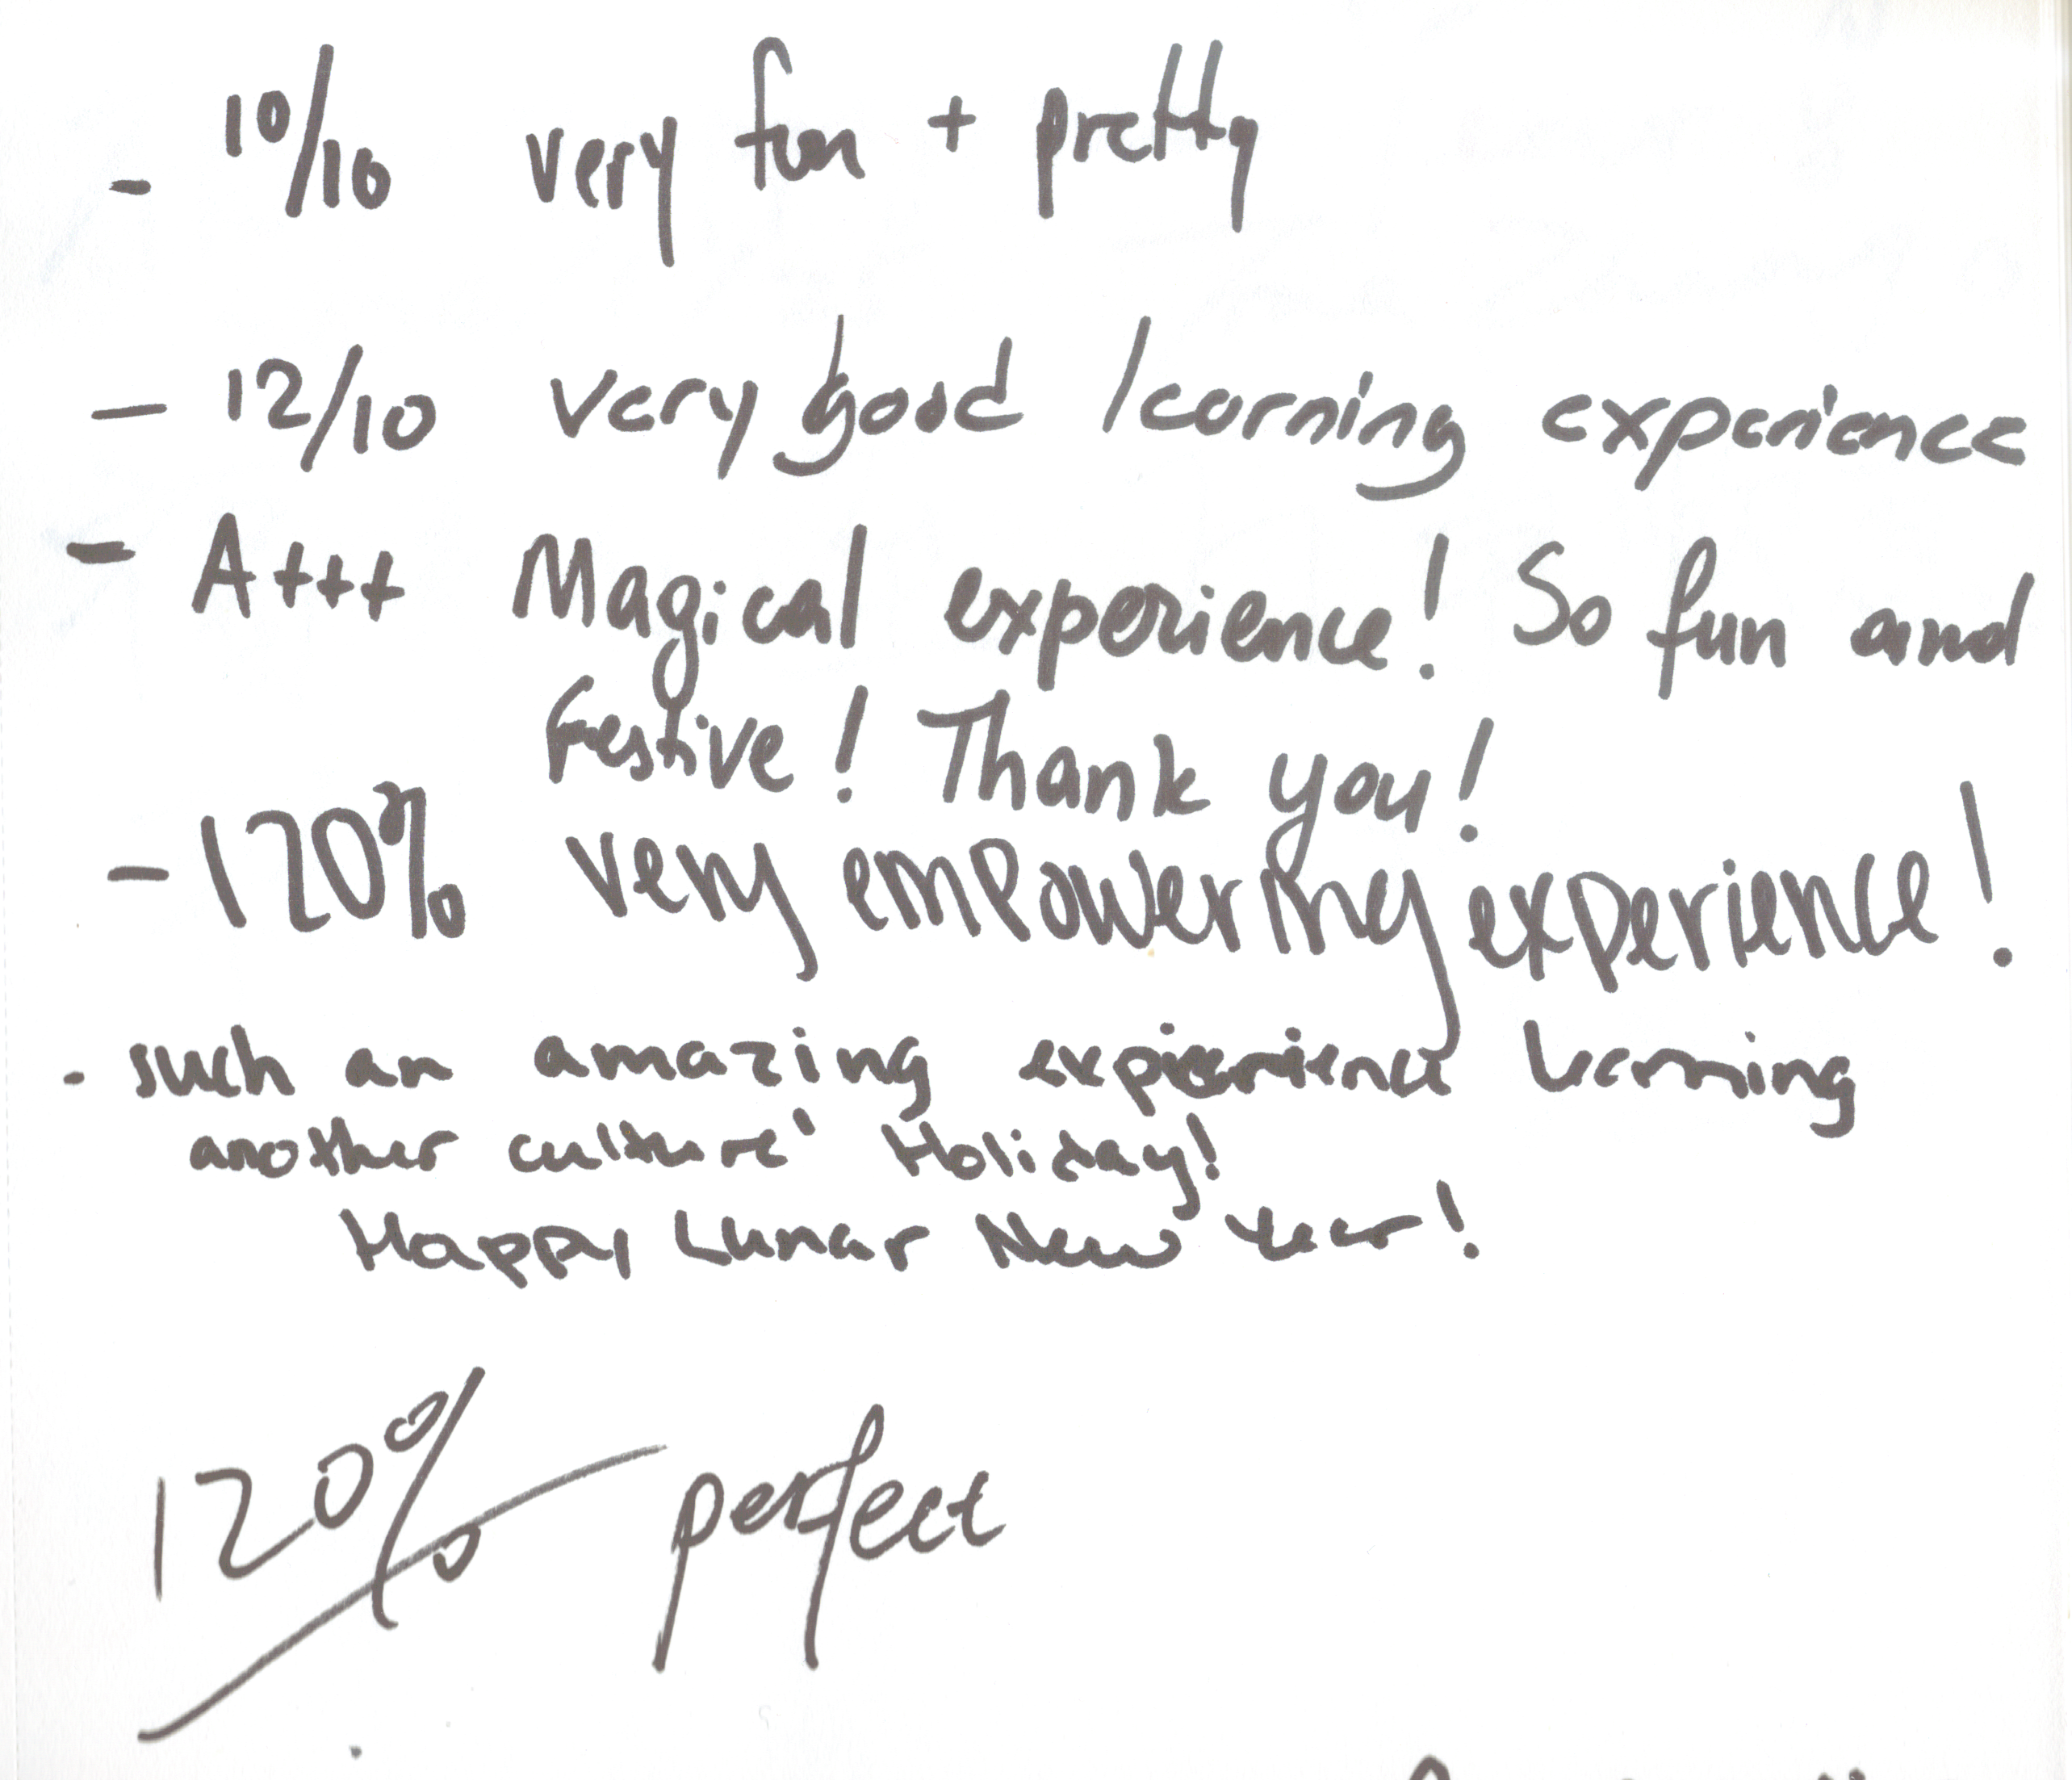 - 10/10 very fun + pretty
- 12/10 very good learning experience
- A+++ Magical experience! So fun and
festive! Thank you!
- 120% very empowering experience!
- such an amazing experience learning
another culture' Holiday!
Happy Lunar New Year!
120% perfect